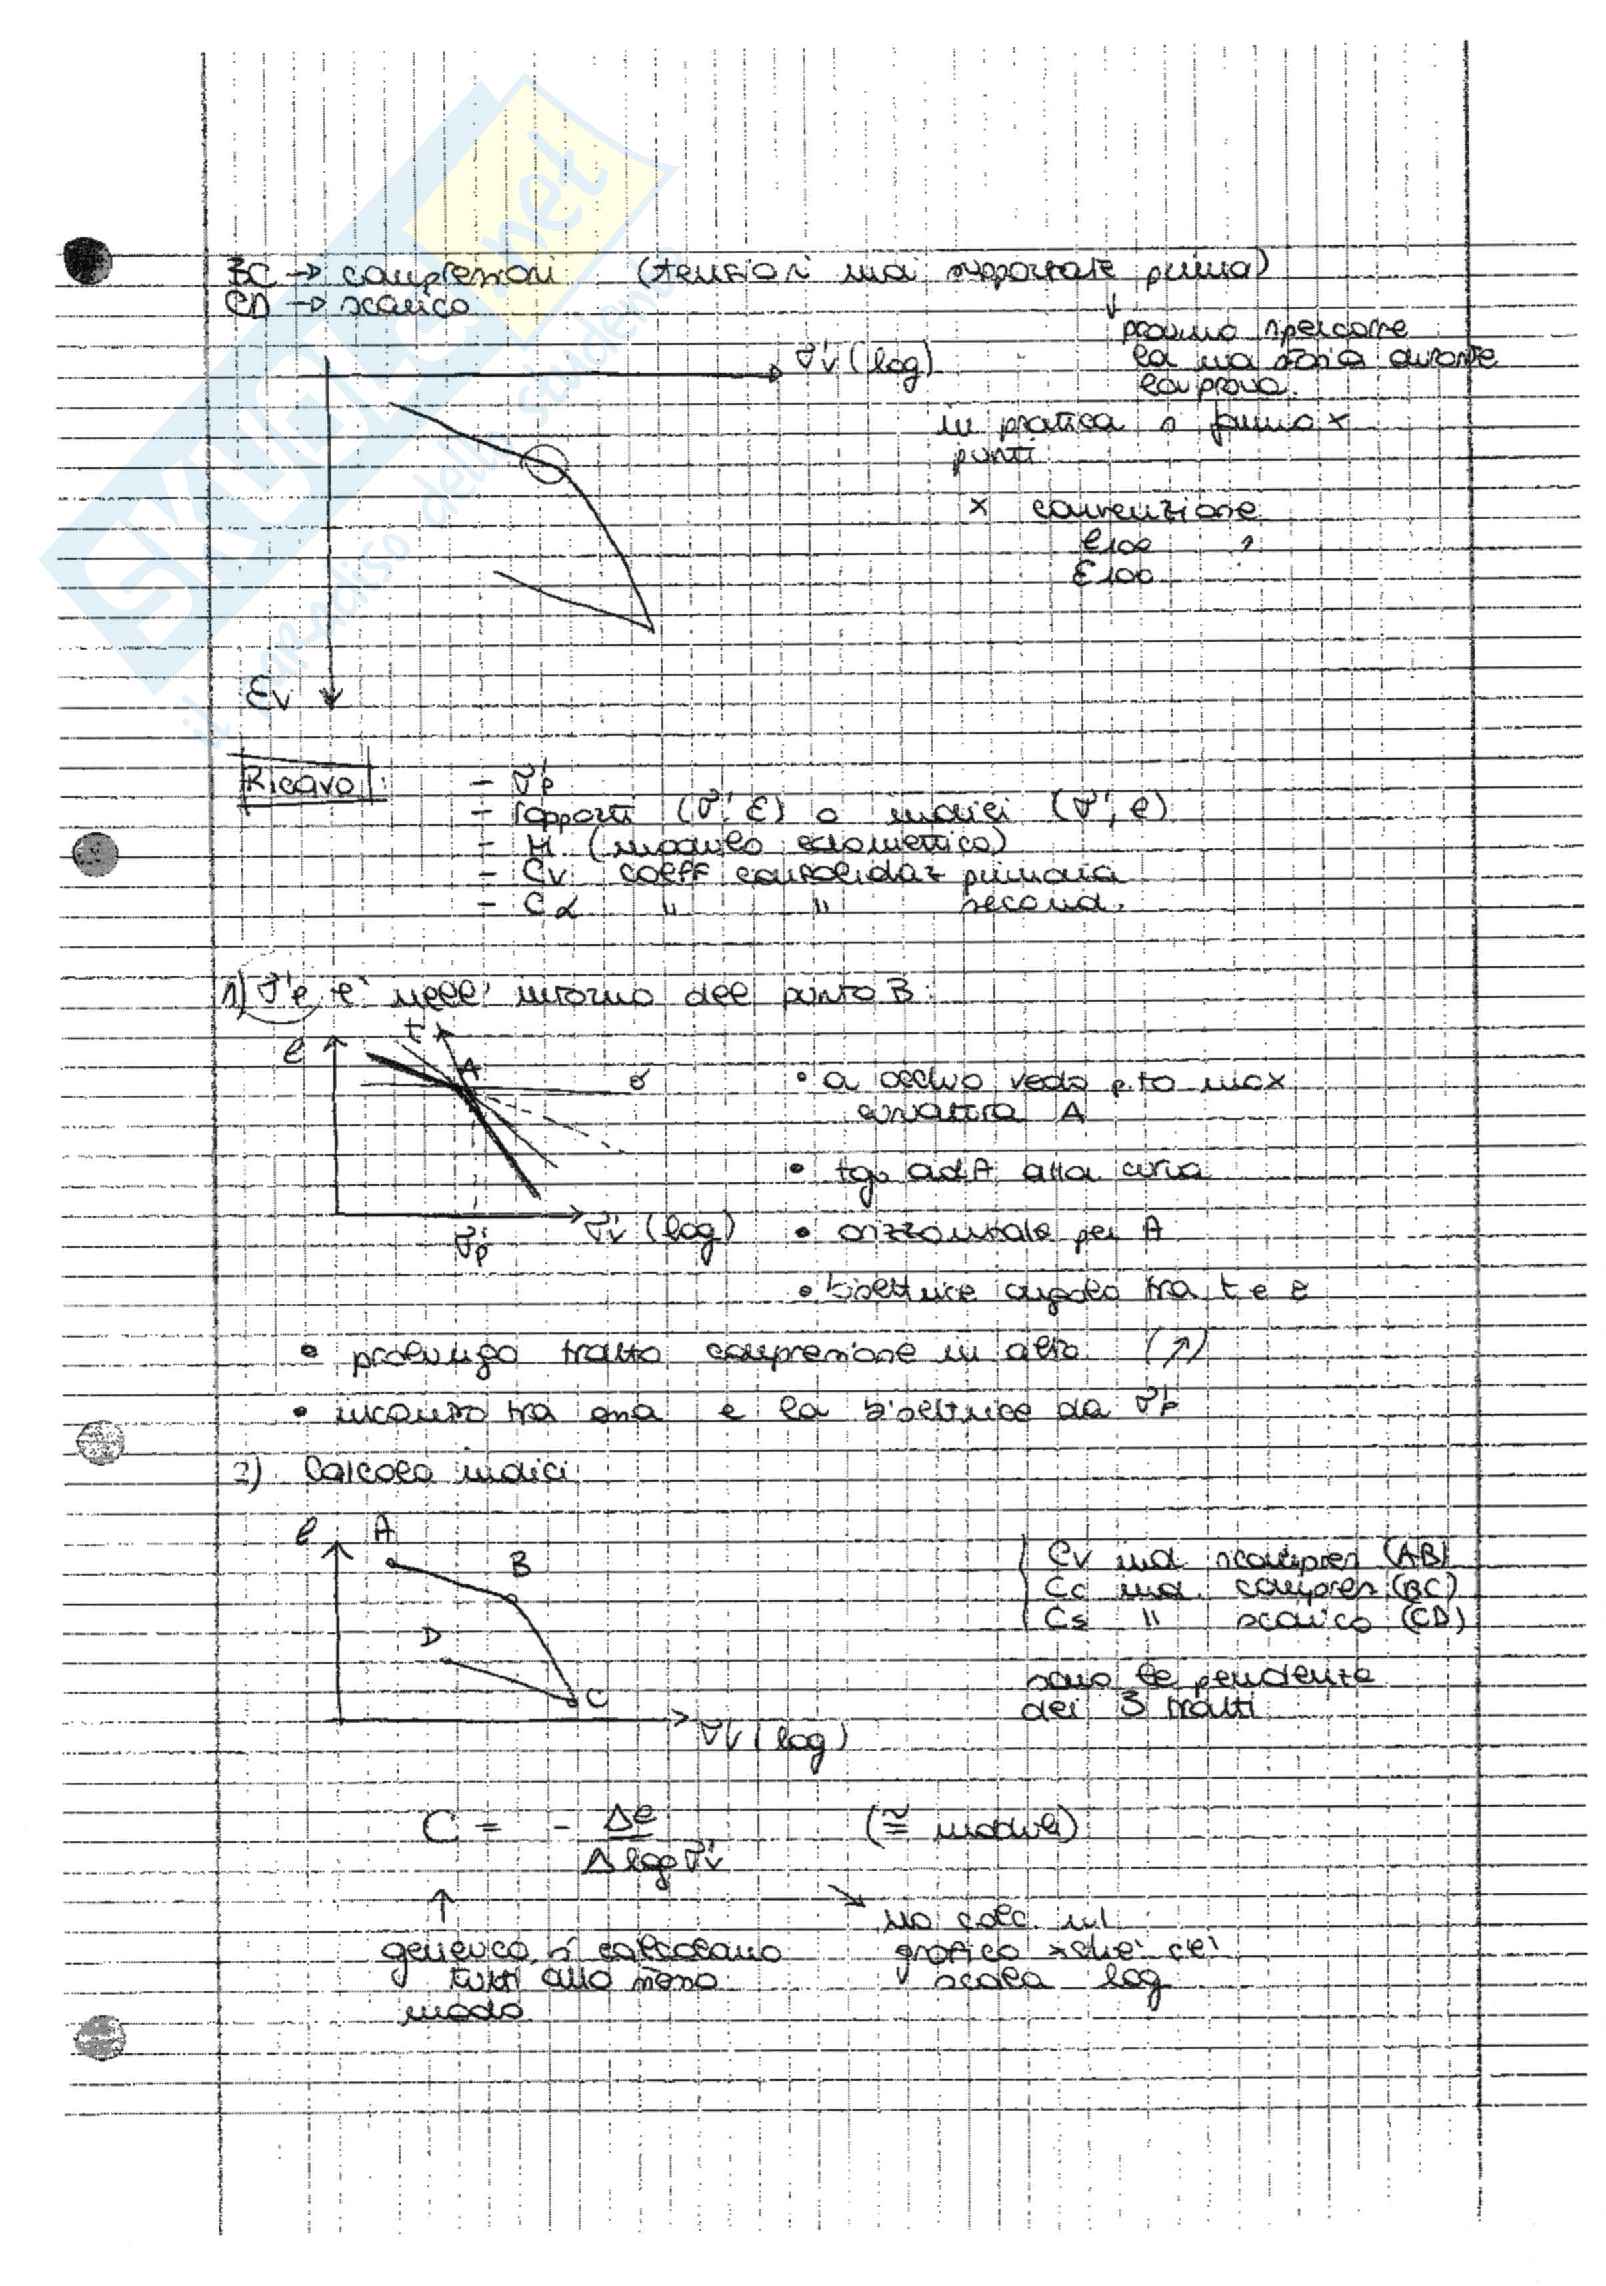 BC → compressioni (tensioni mai sopportate prima)
CD → scarico
↓
posso ripercorre
la sua storia durante
la prova.
σ'v (log)
in pratica si fanno x
punti
x convenzione
e100
ε100
εv
Ricavo:
- σ'p
- rapporti (σ', ε) o indici (σ', e)
- M (modulo edometrico)
- Cv coeff consolidaz primaria
- Cα " " second.
1) σ'p è nell' intorno del punto B:
e
t
A
o
σ'p
σ'v (log)
• a occhio vedo p.to max
curvatura A
• tg. ad A alla curva
• orizzontale per A
• bisettrice angolo tra t e
• prolungo tratto compressione in alto (↗)
• incontro tra essa e la bisettrice da σ'p
2) Calcolo indici
e
A
B
D
C
σ'v (log)
Cv ind ricompres (AB)
Cc ind. compres (BC)
Cs " scarico (CD)
sono le pendenze
dei 3 tratti
C = - Δe / Δ log σ'v (≅ moduli)
↑
generico, si calcolano
tutti allo stesso
modo
↘
no calc. sul
grafico xchè c'è
scala log
SKUOLA.net
il paradiso dello studente